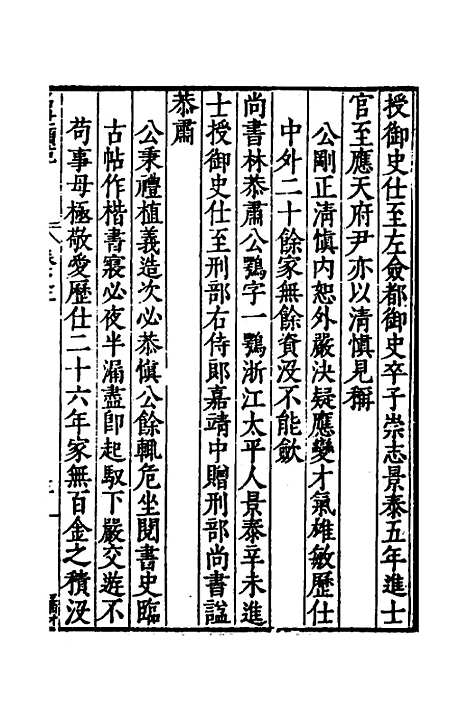 授御史仕至左僉都御史卒子崇志景泰五年進士
官至應天府尹亦以清慎見稱
公剛正清慎内恕外嚴決疑應變才氣雄敏歷仕
中外二十餘家無餘資没不能歛
尚書林恭肅公鶚字一鶚浙江太平人景泰辛未進
士授御史仕至刑部右侍郎嘉靖中贈刑部尚書謚
恭肅
公秉禮植義造次必恭慎公餘輒危坐閱書史臨
古帖作楷書寢必夜半漏盡卽起馭下嚴交遊不
苟事母極敬愛歷仕二十六年家無百金之積没